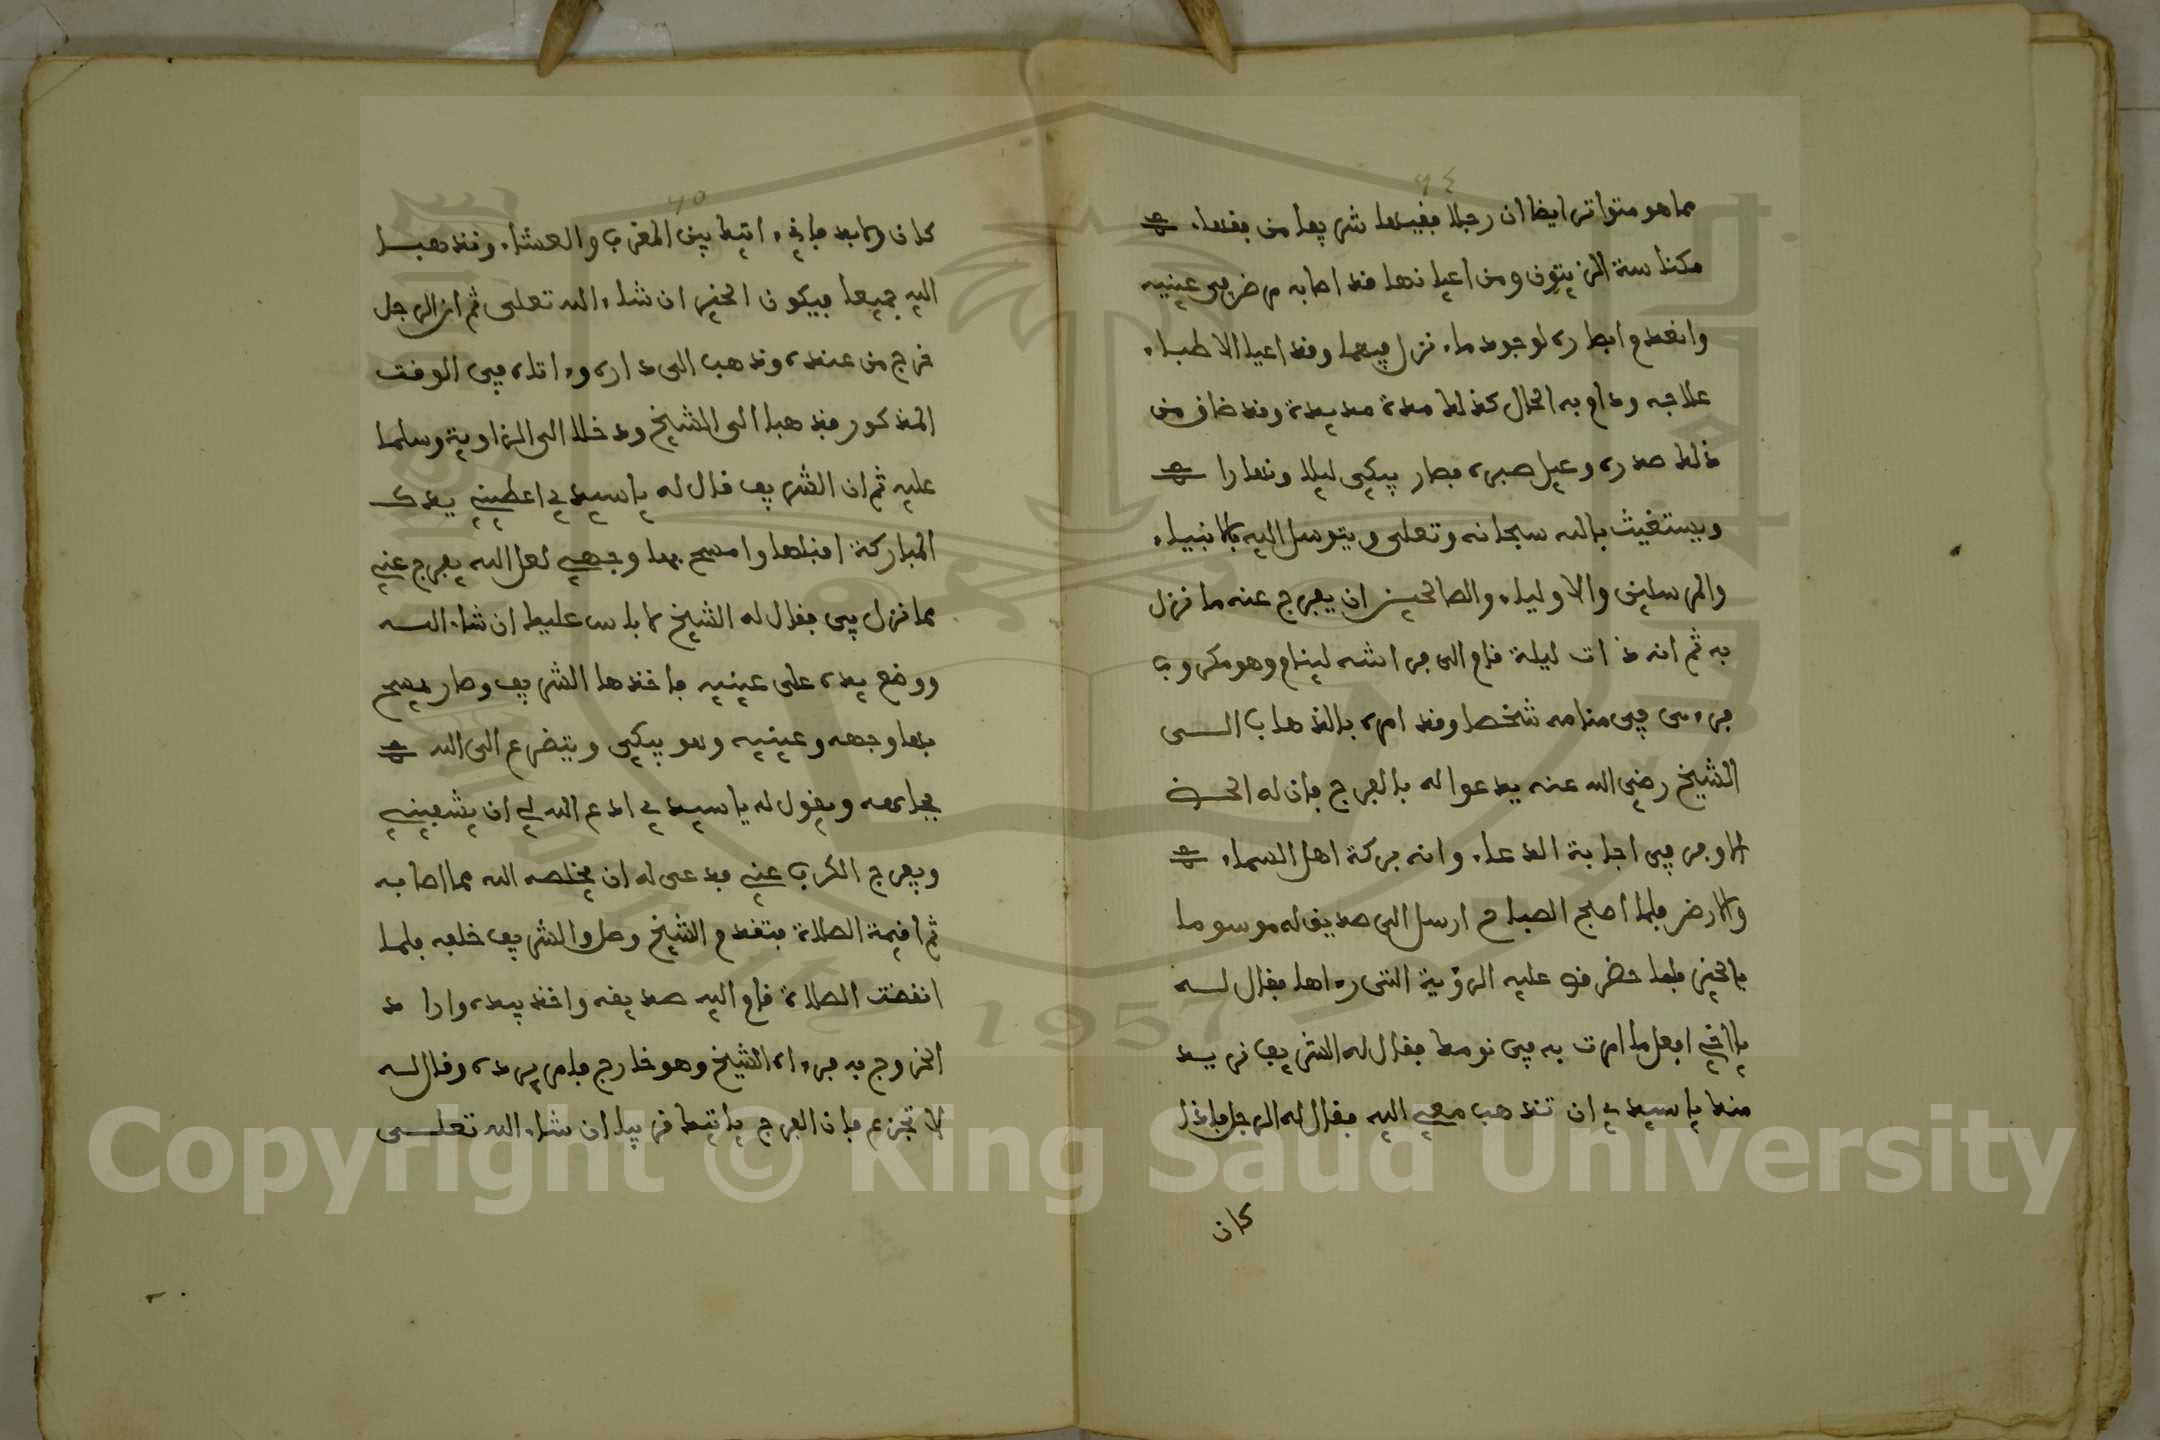 ٩٤
مما هو متواتر ايضا ان رجلا فقيها شريفا من فقهاء
مكناسة الزيتون ومن اعيانها قد اصابه مرض في عينيه
وانعدم ابصاره لوجود ماء نزل فيهما وقد اعيا الاطباء
علاجه ودام به الحال كذلك مدة مديدة وقد ضاق من
ذلك صدره وعيل صبره فصار يبكي ليلا ونهارا
ويستغيث بالله سبحانه وتعلى ويتوسل اليه بالانبياء
والمرسلين والاولياء والصالحين ان يفرج عنه ما نزل
به ثم انه ذات ليلة قام الى فراشه لينام وهو مكروب
فرءى في منامه شخصا وقد امره بالذهاب الى
الشيخ رضي الله عنه يدعوا له بالفرج فان له الحظ
الاوفر في اجابة الدعاء وانه بركة اهل السماء
والارض فلما اصبح الصباح ارسل الى صديق له موسوما
بالخير فلما حضر قص عليه الرؤية التى رءاها فقال له
يا اخي افعل ما امرت به في نومك فقال له الشريف نريد
منك يا سيدي ان تذهب معي اليه فقال له الرجل فاذا
كان
٩٥
كان ولابد فاني ءاتيك بين المغرب والعشاء ونذهبا
اليه جميعا فيكون الخير ان شاء الله تعلى ثم ان الرجل
خرج من عنده وذهب الى داره وءاتاه في الوقت
المذكور فذهبا الى الشيخ ودخلا الى الزاوية وسلما
عليه ثم ان الشريف قال له يا سيدي اعطيني يدك
المباركة اقبلها وامسح بها وجهي لعل الله يفرج عني
ما نزل بي فقال له الشيخ لا باس عليك ان شاء الله
ووضع يده على عينيه فاخذها الشريف وصار يمسح
بها وجهه وعينيه وهو يبكي ويتضرع الى الله
بجامعه ويقول له يا سيدي ادع الله لي ان يشفيني
ويفرج الكرب عني فدعى له ان يخلصه الله مما اصابه
ثم اقيمة الصلاة فتقدم الشيخ وصلى والشريف خلفه فلما
انقضت الصلاة قام اليه صديقه واخذ بيده واراد
الخروج به فرءاه الشيخ وهو خارج فامر برده وقال له
لا تجزع فان الفرج ياتيك قريبا ان شاء الله تعلى
Copyright © King Saud University
1957